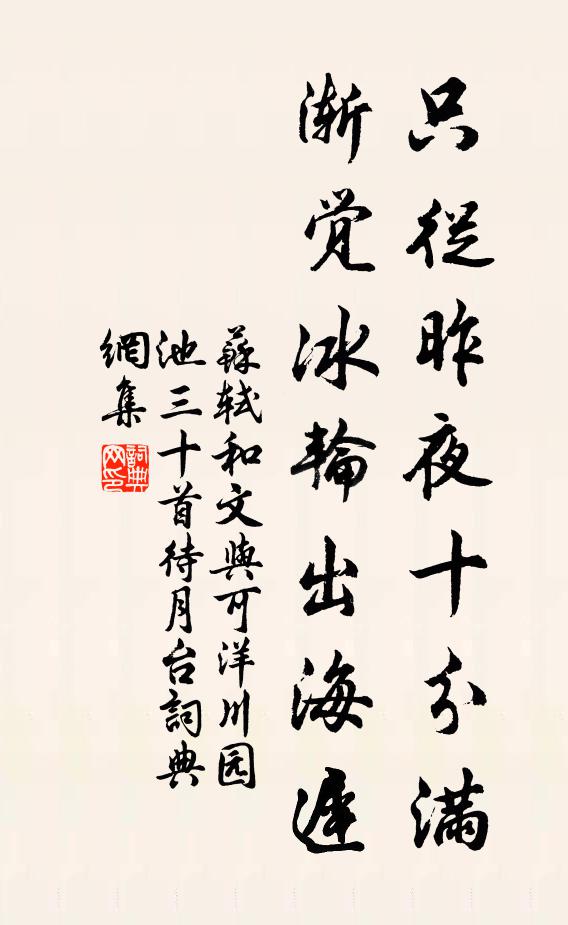 只從昨夜十分滿
漸覺冰輪出海遲
蘇軾和文與可洋川园
池三十首待月台詞典
網集
詞典
网印